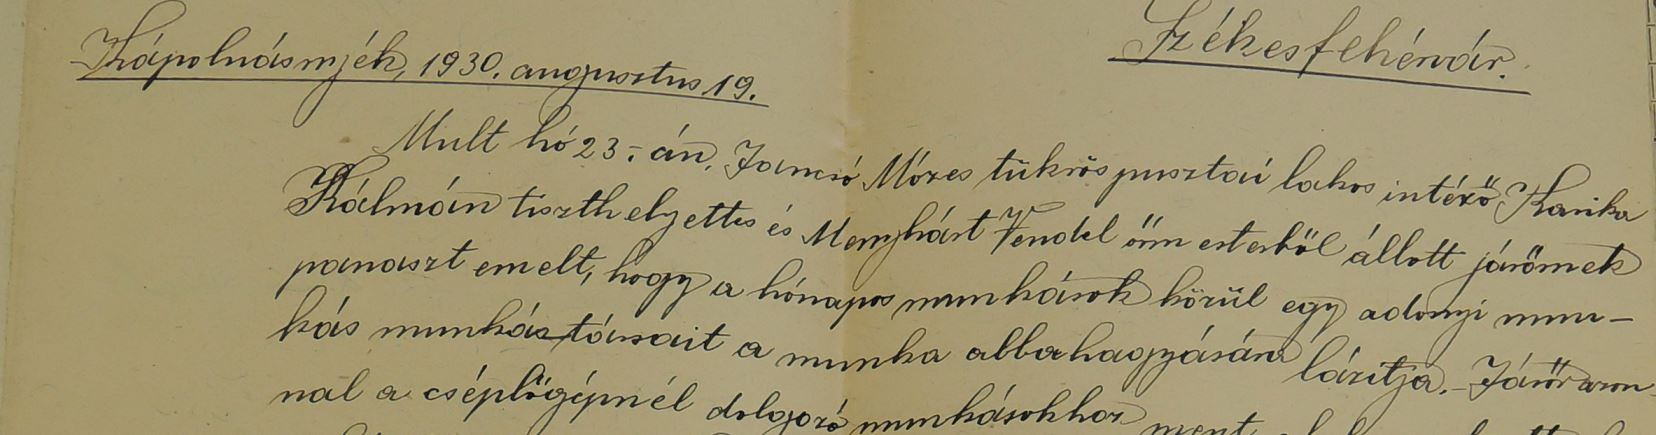 Székesfehérvár.
Kápolnásnyék, 1930. augusztus 19.
Mult hó 23.-án, Jancsó Mózes tükröspusztai lakos intéző Kanika
Kálmán tiszthelyettes és Menyhárt Vendel őrm esterből állott járőrnek
panaszt emelt, hogy a hónapos munkások körül egy adonyi mun-
kás munkástársait a munka abbahagyására lázitja. Járőr azon
nal a cséplőgépnél dolgozó munkásokhoz ment